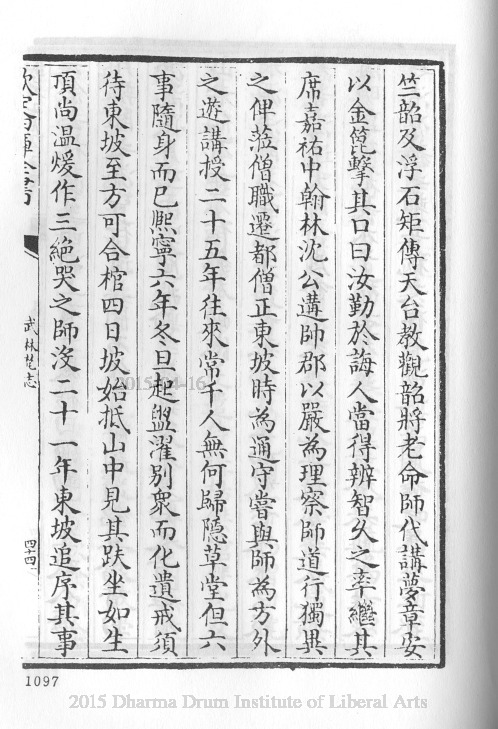 竺韶及浮石矩傳天台教觀韶將老命師代講夢章安
以金篦擊其口曰汝勤於誨人當得辨智久之率繼其
席嘉祐中翰林沈公遘帥郡以嚴為理察師道行獨異
之俾蒞僧職遷都僧正東坡時為通守嘗與師為方外
之遊講授二十五年往來常千人無何歸隐草堂但六
事隨身而已熈寧六年冬旦起盥濯别衆而化遺戒須
待東坡至方可合棺四日坡始抵山中見其趺坐如生
頂尚温煖作三絶哭之師沒二十一年東坡追序其事
欽定四庫全書
武林梵志
四十四
1097
2015 Dharma Drum Institute of Liberal Arts